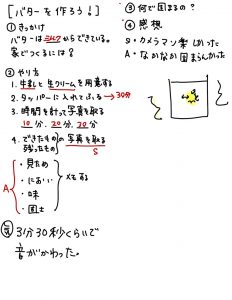 [バターを作ろう!]
① きっかけ
バターはミルクからできている。
家でつくるには?
② やり方
1. 牛乳と生クリームを用意する
2. タッパーに入れてふる → 30分
3. 時間を計って写真を取る
10分. 20分. 30分
4. できたもの
残ったもの
の写真を取る
S
A
・見ため
・におい
・味
・固さ
メモする
31分30秒くらいで
音がかわった。
③ 何で固まるの?
④ 感想
S・カメラマン楽しかった
A・なかなか固まらんかった